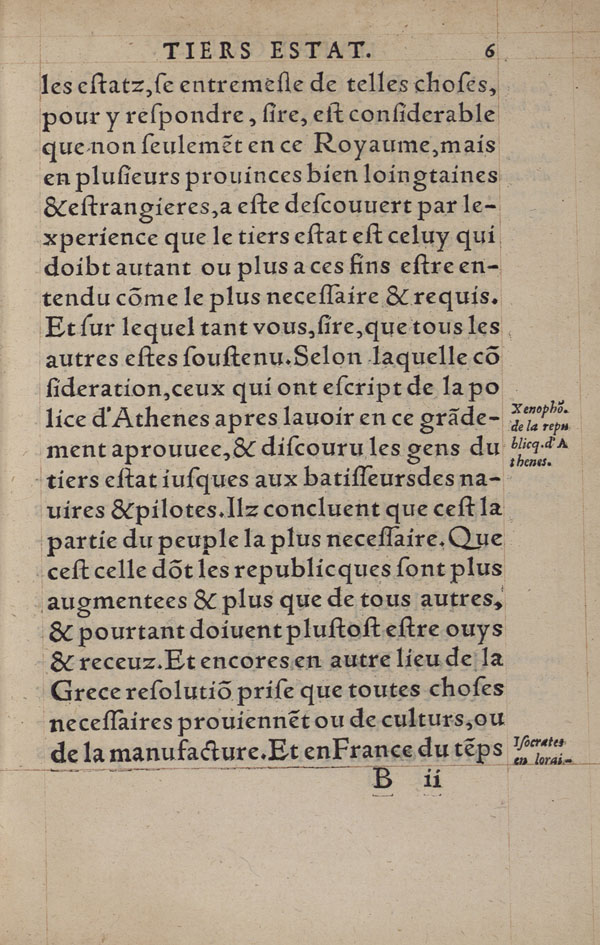 TIERS ESTAT. 6
les eſtatz,ſe entremeſle de telles choſes,
pour y reſpondre, ſire, eſt conſiderable
que non ſeulemēt en ce Royaume,mais
en pluſieurs prouinces bien loingtaines
&eſtrangieres,a eſte deſcouuert par le-
xperience que le tiers eſtat eſt celuy qui
doibt autant ou plus a ces fins eſtre en-
tendu cōme le plus neceſſaire & requis.
Et ſur lequel tant vous,ſire,que tous les
autres eſtes ſouſtenu.Selon laquelle cō
ſideration,ceux qui ont eſcript de la po
lice d'Athenes apres lauoir en ce grāde-
ment aprouuee,& diſcouru les gens du
tiers eſtat iuſques aux batiſſeursdes na-
uires &pilotes.Ilz concluent que ceſt la
partie du peuple la plus neceſſaire.Que
ceſt celle dōt les republicques ſont plus
augmentees & plus que de tous autres,
& pourtant doiuent pluſtoſt eſtre ouys
& receuz.Et encores en autre lieu de la
Grece reſolutiō priſe que toutes choſes
neceſſaires prouiennēt ou de culturs,ou
de la manufacture.Et enFrance du tēps
B ii
Xenophō.
de la repu
blicq.d'A
thenes.
Iſocrates
en lorai-